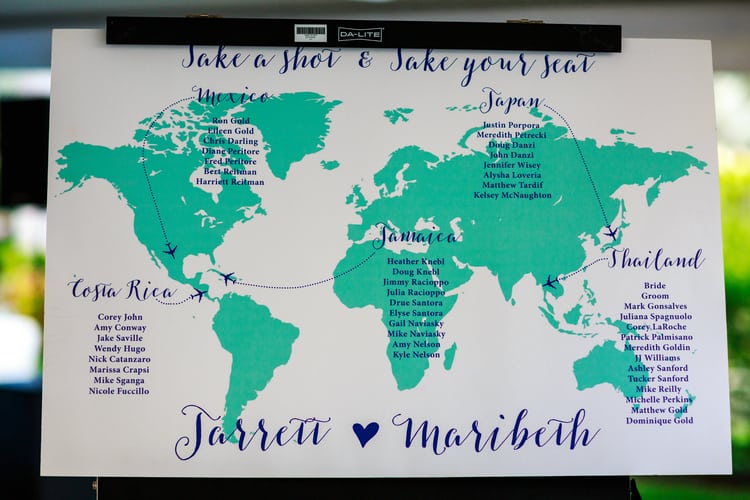 DA-LITE
Take a shot & Take your seat
Mexico
Ron Gold
Eileen Gold
Chris Darling
Diane Peritore
Fred Peritore
Bert Reitman
Harriett Reitman
Japan
Justin Porpora
Meredith Petrecki
Doug Danzi
John Danzi
Jennifer Wisey
Alysha Loveria
Matthew Tardif
Kelsey McNaughton
Jamaica
Heather Knebl
Doug Knebl
Jimmy Racioppo
Julia Racioppo
Drue Santora
Elyse Santora
Gail Naviasky
Mike Naviasky
Amy Nelson
Kyle Nelson
Costa Rica
Corey John
Amy Conway
Jake Saville
Wendy Hugo
Nick Catanzaro
Marissa Crapsi
Mike Sganga
Nicole Fuccillo
Thailand
Bride
Groom
Mark Gonsalves
Juliana Spagnuolo
Corey LaRoche
Patrick Palmisano
Meredith Goldin
JJ Williams
Ashley Sanford
Tucker Sanford
Mike Reilly
Michelle Perkins
Matthew Gold
Dominique Gold
Jarrett ♥ Maribeth